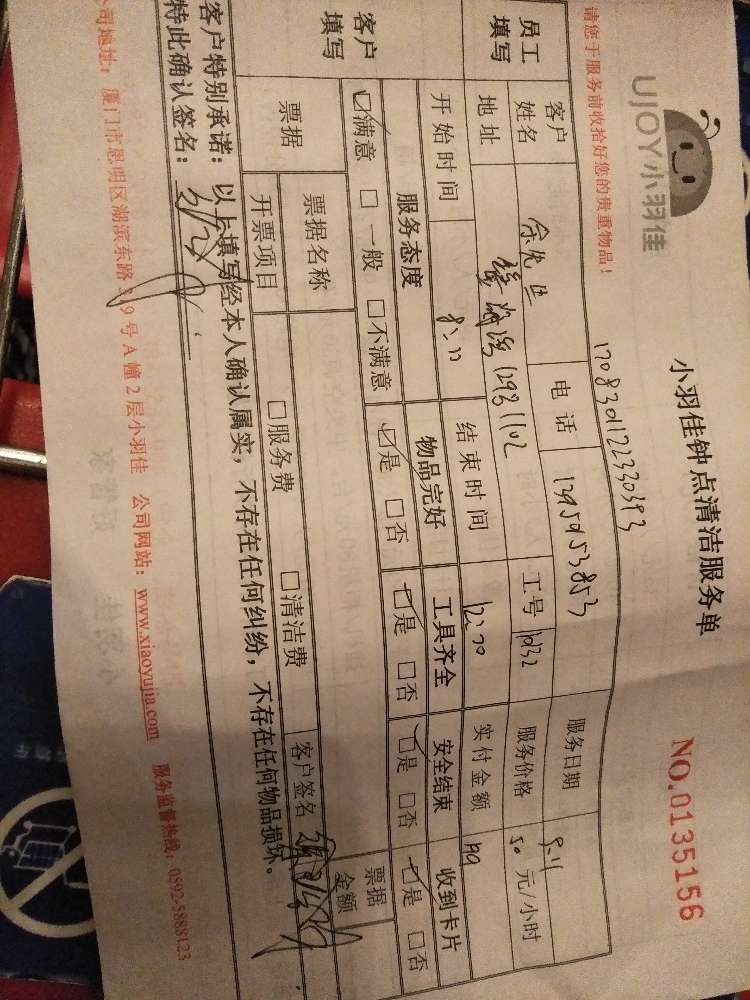 UJOY小羽佳
小羽佳钟点清洁服务单
NO.0135156
请您于服务前收拾好您的贵重物品！
170830112330393
员工填写
客户姓名 余先生 电话 13959153853 服务日期 9.11
地址 1298 1102 工号 1032 服务价格 50 元/小时
开始时间 8:00 结束时间 12:00 实付金额
客户填写
服务态度 物品完好 工具齐全 安全结束 收到卡片
☑满意 □一般 □不满意 ☑是 □否 ☑是 □否 ☑是 □否 ☑是 □否
票据 票据名称 □服务费 □清洁费 票据金额
开票项目 客户签名
客户特别承诺：以上填写经本人确认属实，不存在任何纠纷，不存在任何物品损坏。
特此确认签名：
公司地址：厦门市思明区湖滨东路319号A幢2层小羽佳 公司网站：www.xiaoyujia.com 服务监督热线：0592-5888123